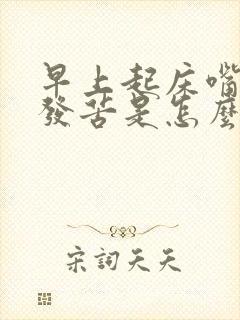 早上起床嘴
發苦是怎麼
宋詞天天